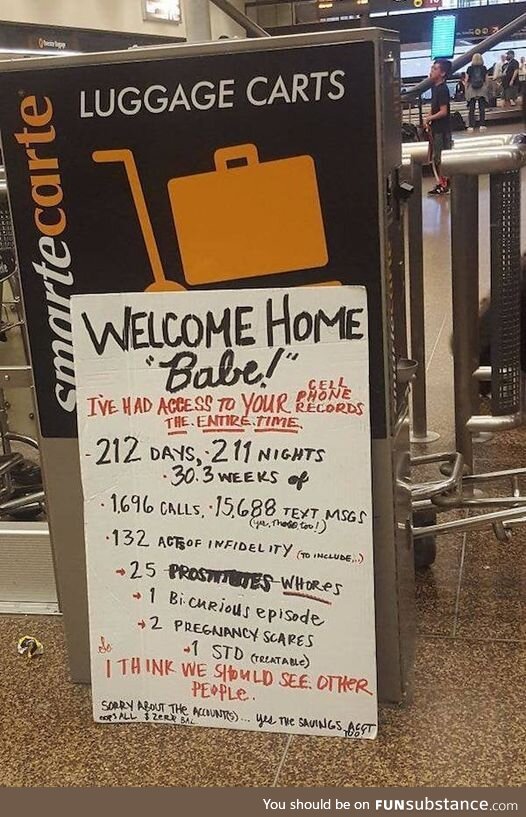 LUGGAGE CARTS
smartecarte
WELCOME HOME
"Babe!"
I'VE HAD ACCESS TO YOUR CELL PHONE RECORDS
THE ENTIRE TIME.
- 212 DAYS, · 211 NIGHTS
· 30.3 WEEKS of
· 1,696 CALLS, · 15,688 TEXT MSGS
(yes, those too!)
· 132 ACTS OF INFIDELITY (TO INCLUDE...)
→ 25 PROSTITUTES WHORES
→ 1 Bi.curious episode
→ 2 PREGNANCY SCARES
→ 1 STD (TREATABLE)
So
I THINK WE SHOULD SEE OTHER
PEOPLE.
SORRY ABOUT THE ACCOUNT(S)... yes THE SAVINGS ACCT TOO!
ALL $ ZERO BAL.
You should be on FUNsubstance.com